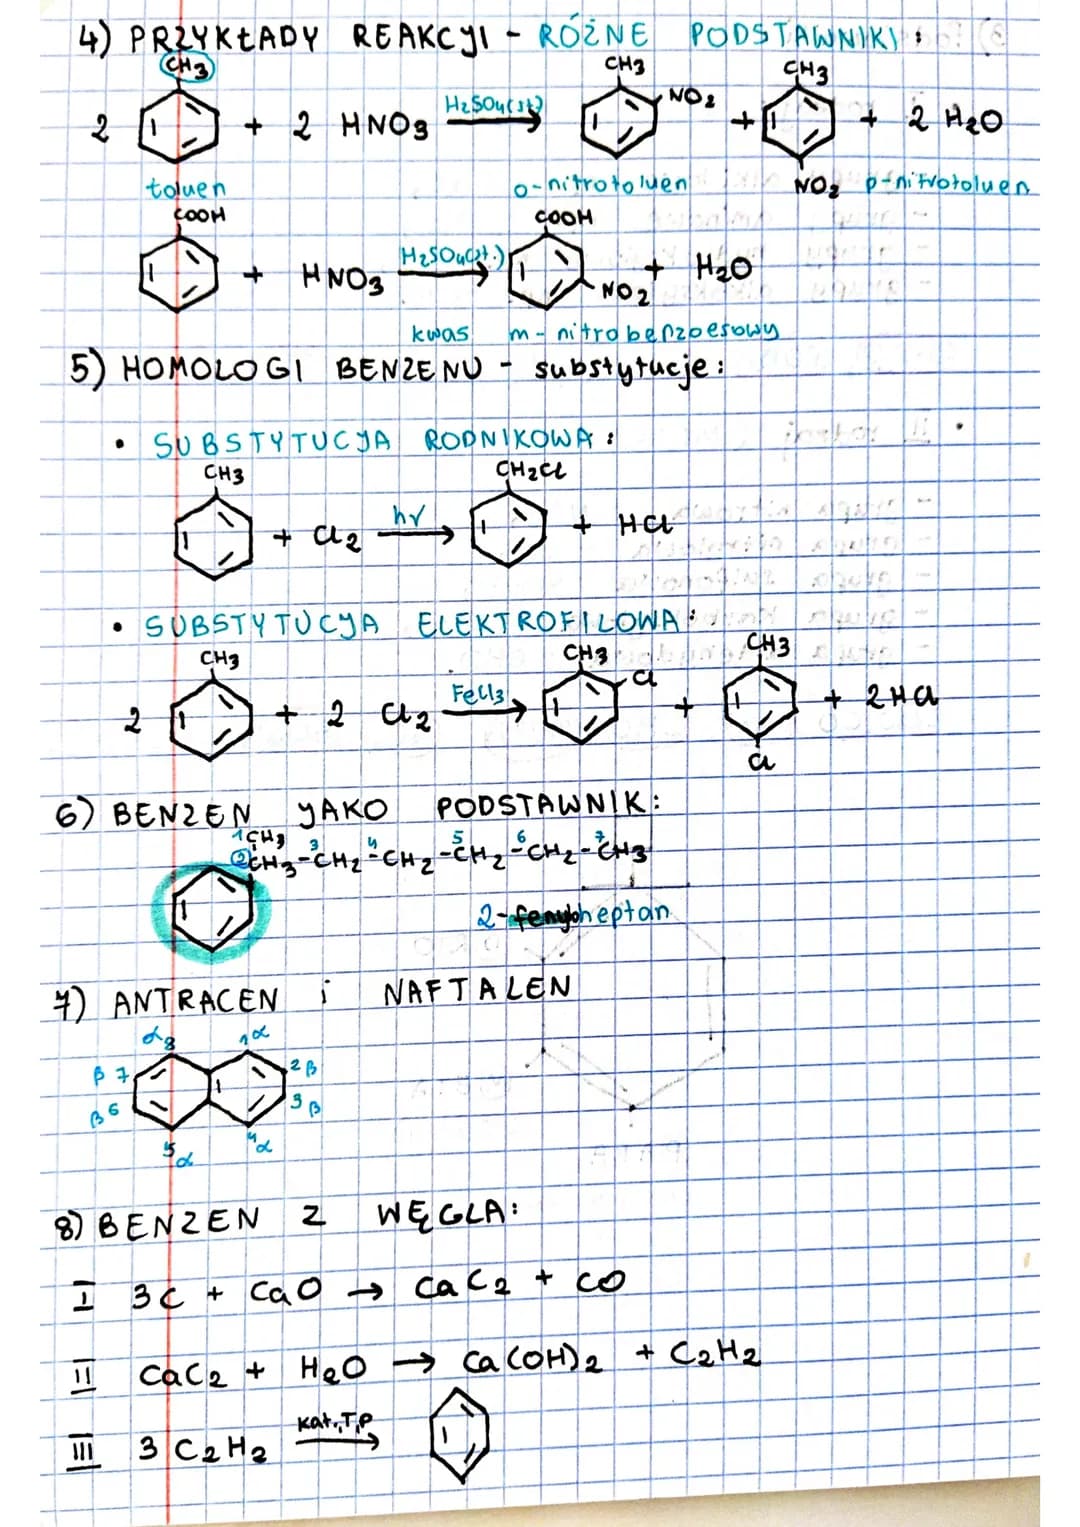 4) PRZYKŁADY REAKCJI - RÓŻNE PODSTAWNIKI:
CH3 CH3 CH3
2 + 2 HNO3 H2SO4(st) NO2 + + 2 H2O
toluen o-nitrotoluen NO2 p-nitrotoluen
COOH COOH
+ HNO3 H2SO4(st.) NO2 + H2O
kwas m-nitrobenzoesowy
5) HOMOLOGI BENZENU - substytucje:
• SUBSTYTUCJA RODNIKOWA:
CH3 CH2Cl
+ Cl2 hν + HCl
• SUBSTYTUCJA ELEKTROFILOWA:
CH3 CH3 CH3
2 + 2 Cl2 FeCl3 Cl + + 2HCl
Cl
6) BENZEN JAKO PODSTAWNIK:
1 CH3 3 4 5 6 7
2 CH3-CH2-CH2-CH2-CH2-CH3
2-fenyloheptan
7) ANTRACEN i NAFTALEN
α8 1α
β 7 2β
β 6 3 β
5α 4α
8) BENZEN Z WĘGLA:
I 3C + CaO → CaC2 + CO
II CaC2 + H2O → Ca(OH)2 + C2H2
III 3 C2H2 kat.,T,P